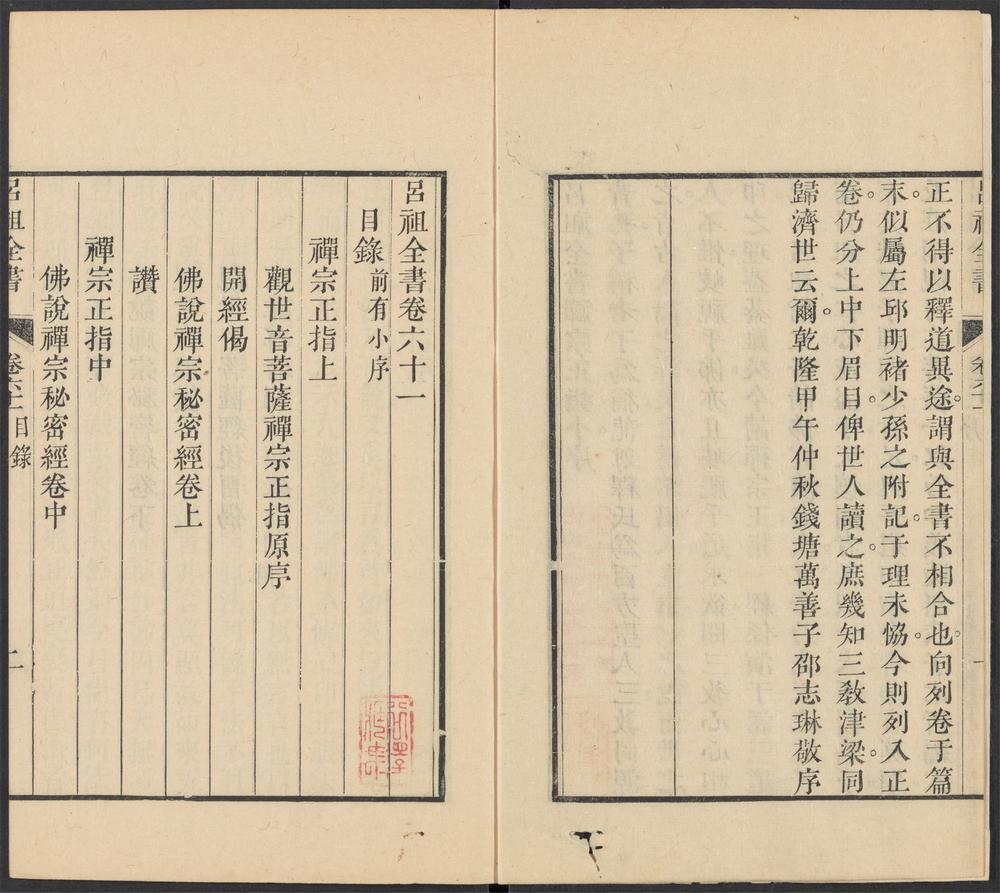 正不得以釋道異途。謂與全書不相合也。向列卷于篇
末。似屬左邱明褚少孫之附記。于理未恊。今則列入正
卷。仍分上中下眉目。俾世人讀之。庶幾知三敎津梁。同
歸濟世云爾。乾隆甲午仲秋錢塘萬善子邵志琳敬序
呂祖全書卷六十一
目錄 前有小序
禪宗正指上
觀世音菩薩禪宗正指原序
開經偈
佛說禪宗秘密經卷上
讚
禪宗正指中
佛說禪宗秘密經卷中
呂祖全書 卷六十一 目錄 二